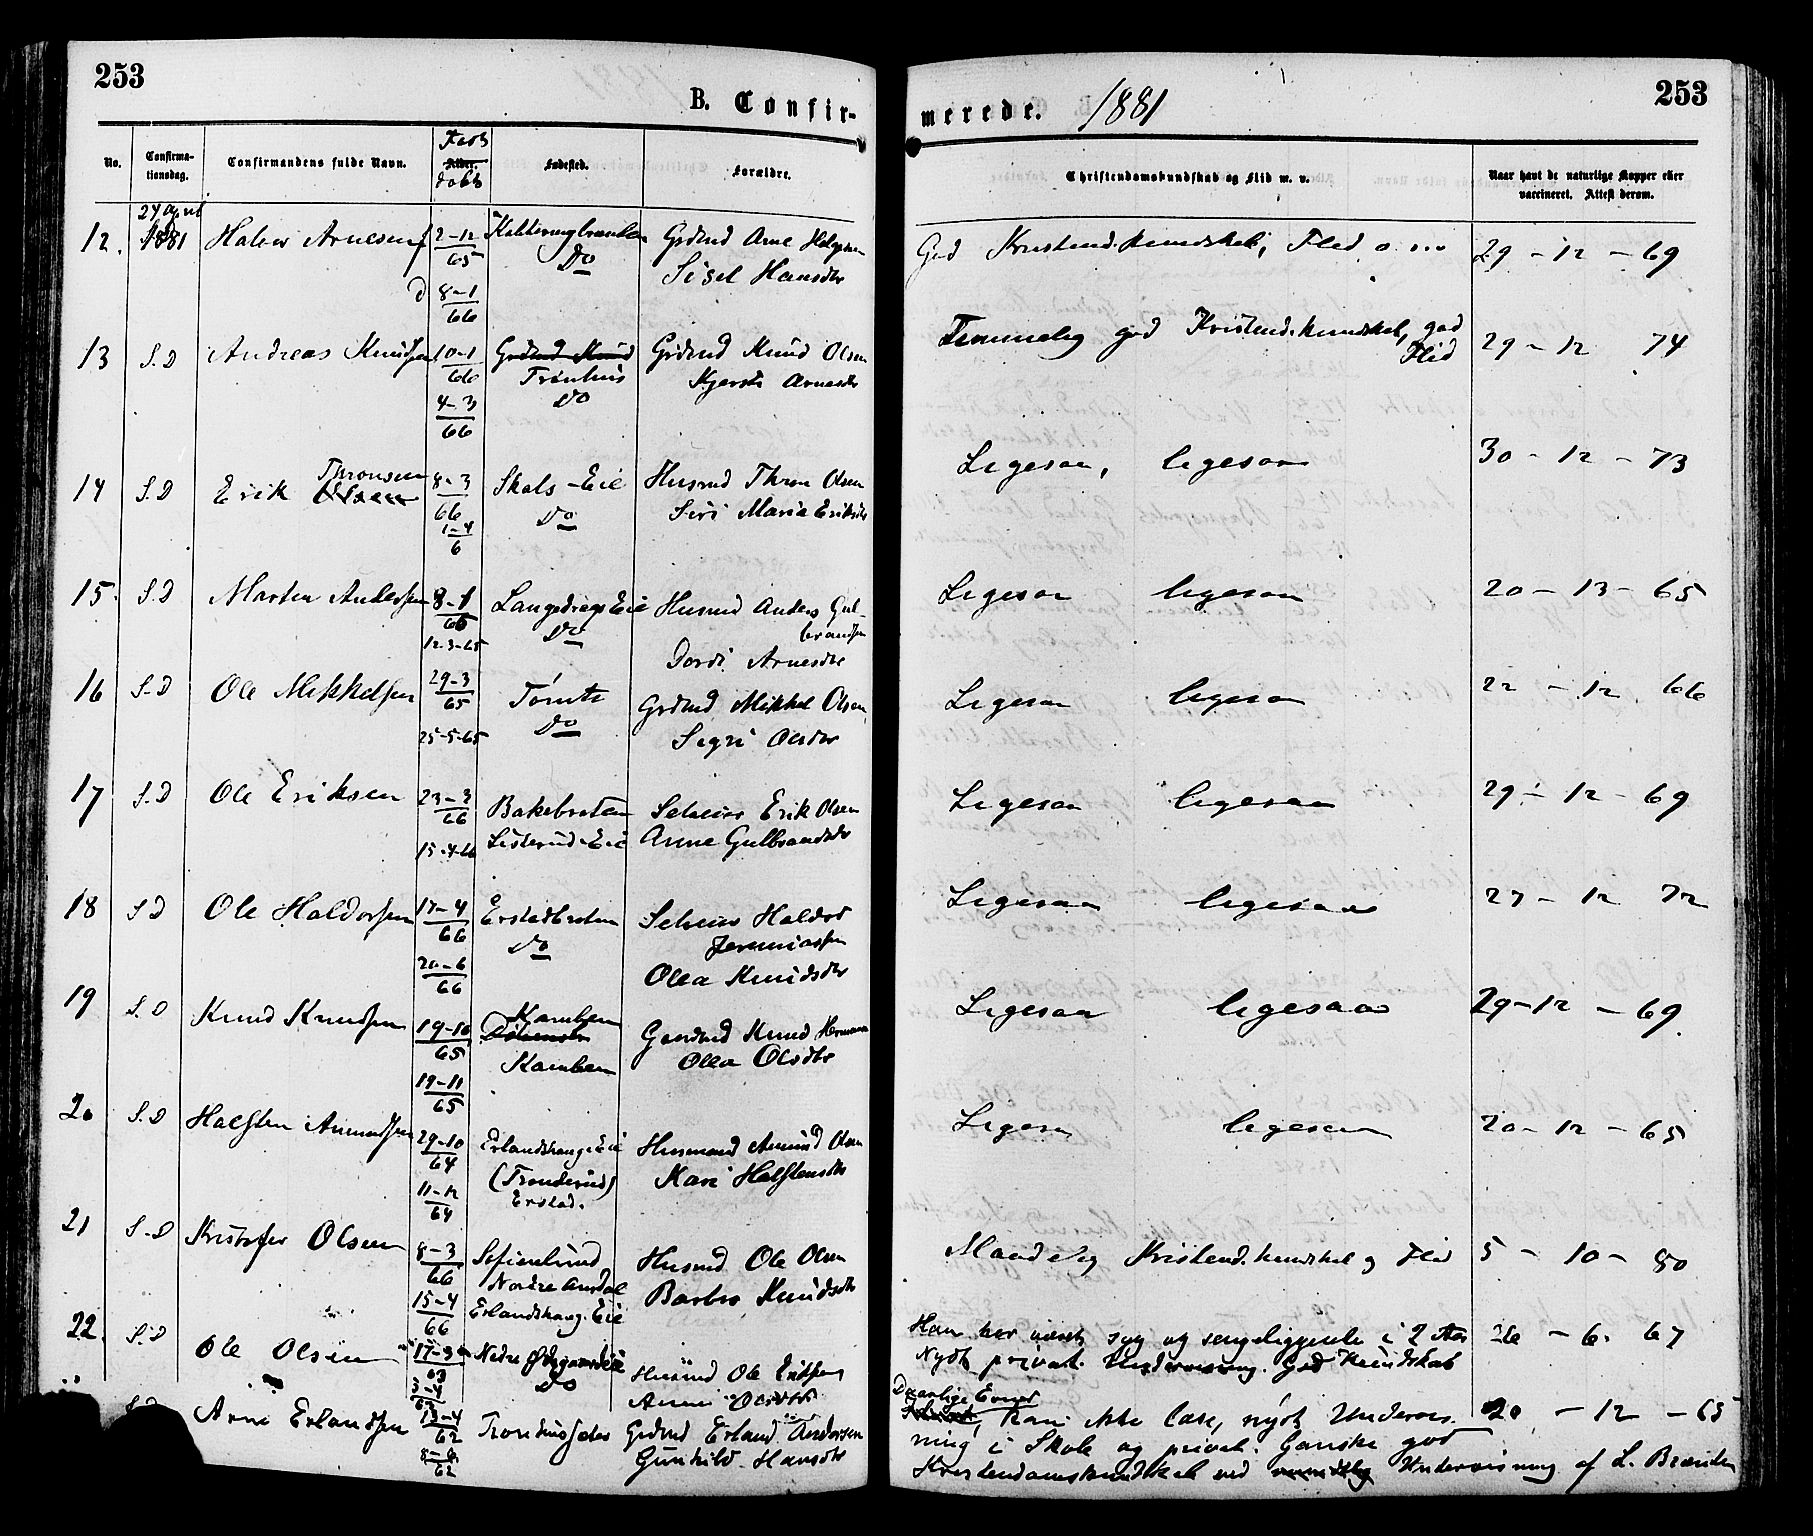 253
B. Confir-
No.
Confirma-
tionsdag.
Confirmandens fulde Navn.
Født
Alder.
døbt
Fødested.
Forældre.
12. 24 April 1881 Halvor Arnesen f 2-12/65
d 8-1/66
Do
Grdmd Arne Helgesen
Sisel Hansdtr
13 S.D Andreas Knudsen 10-1/66
4-3/66
Grdmd Knud
Trønhus
Do
Grdmd Knud Olsen
Kjersti Arnesdtr
14 S.D Erik Olsen Thronsen 8-3/66
1-4/6
Skals-Eie
Do
Husmd Thron Olsen
Siri Maria Eriksdtr
15. S.D Marten Andersen 8-1/65
12-3-65
Langedrags Eie
Do
Husmd Anders Gul-
brandsen
Dordi Arnesdtr
16 S.D Ole Mikkelsen 29-3/65
25-5-65
Do
Grdmd Mikkel Olsen
Sigri Olsdtr
17 S.D Ole Eriksen 23-3/66
15-4-66
Bakebraten
Listerud-Eie
Selveier Erik Olsen
Anne Gulbrandsdtr
18 S D Ole Haldorsen 17-4/66
20-6/66
Do
Selveier Haldor
Jeremiassen
Olea Knudsdtr
19 S.D Knud Knudsen 19-10/65
19-11/65
Kamben
Kamben
Knud Herman
Olea Olsdtr
20 S.D Halsten Amundsen 29-10/64
11-12/64
Erlandshaug. Eie
(Tronderud)
Erstad.
Husmand Amund Olsen
Kari Halstensdtr
21 S.D Kristofer Olsen 8-3/66
15-4/66
Sofienlund
Nordre Ansdal
Erlandshaug. Eie
Husmd Ole Olsen
Barbro Knudsdtr
22. S.D Ole Olsen 17-3/63
3-4/63
Nedre Ødegaards Eie
Do
Husmd Ole Eriksen
Anne Olsdtr
S.D Arne Erlandsen 13-4/62
8-6/62
Tronhusseter
Grdmd Erland Andersen
Gunhild Hansdtr
253
merede. 1881
Christendomskundskab og Flid m. v.
Naar havt de naturlige Kopper eller
vaccineret. Attest derom.
God Kristend.kundskab, Flid o ... 29-12-69
Temmelig god Kristend.kundskab, god
Flid 29-12 74
Ligesaa, ligesaa 30-12-73
Ligesaa ligesaa 20-13-65
Ligesaa ligesaa 22-12. 66
Ligesaa ligesaa 29-12-69
Ligesaa ligesaa 27-12 72
Ligesaa ligesaa 29-12-69
Ligesaa ligesaa 20-12-65
Maadelig Kristend.kundskab og Flid 5-10-80
Han har været syg og sengeliggende i 2 Aar 26-6. 67
Nydt privat. Undervisning. God Kundskab
Daarlige Evner
kan ikke læse, nydt Undervis- 20-12-65
ning i Skole og privat. Ganske god
Kristendomskundskab ved mundtlig Undervisning af L. Brænden